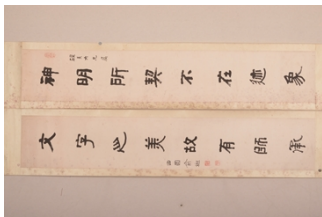 神明所契不在迹象
文字之美故有師承
曲園俞樾